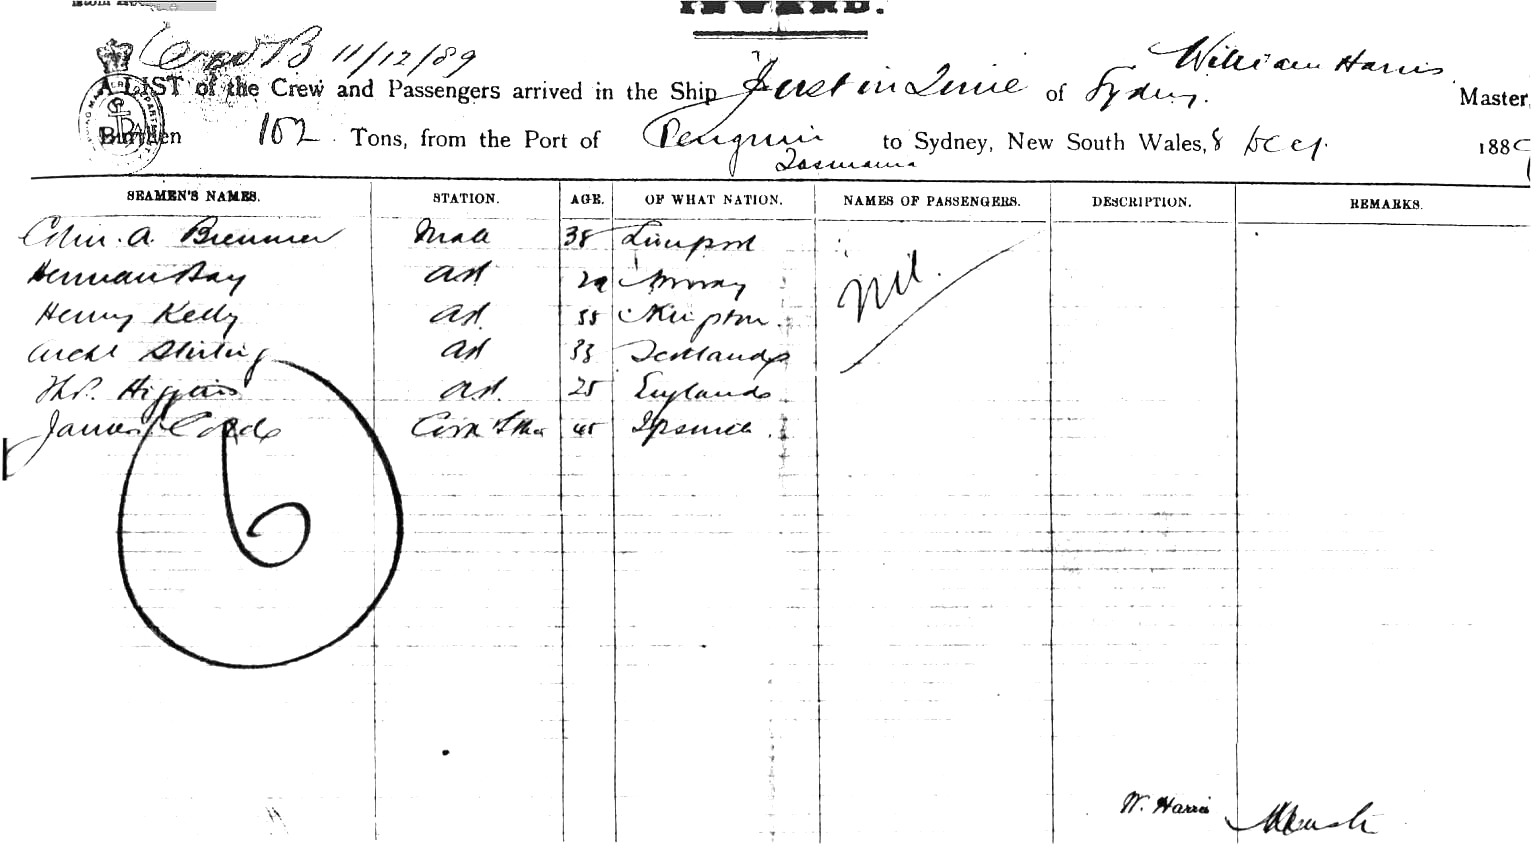 INWARD.
11/12/89
William Harris
A LIST of the Crew and Passengers arrived in the Ship Just in Time of Sydney. Master,
Burthen 102 Tons, from the Port of Penguin to Sydney, New South Wales, 8 Decr. 1889
Tasmania
SEAMEN'S NAMES. STATION. AGE. OF WHAT NATION. NAMES OF PASSENGERS. DESCRIPTION. REMARKS.
A. Bremner Mate 38 Liverpool
Herman Bay AB 29 Norway Nil.
Henry Kelly AB. 55
Archd Stirling AB 33 Scotland
Thos. Higgins AB. 25 England
James Cook & Stew 45 Ipswich
6
W. Harris